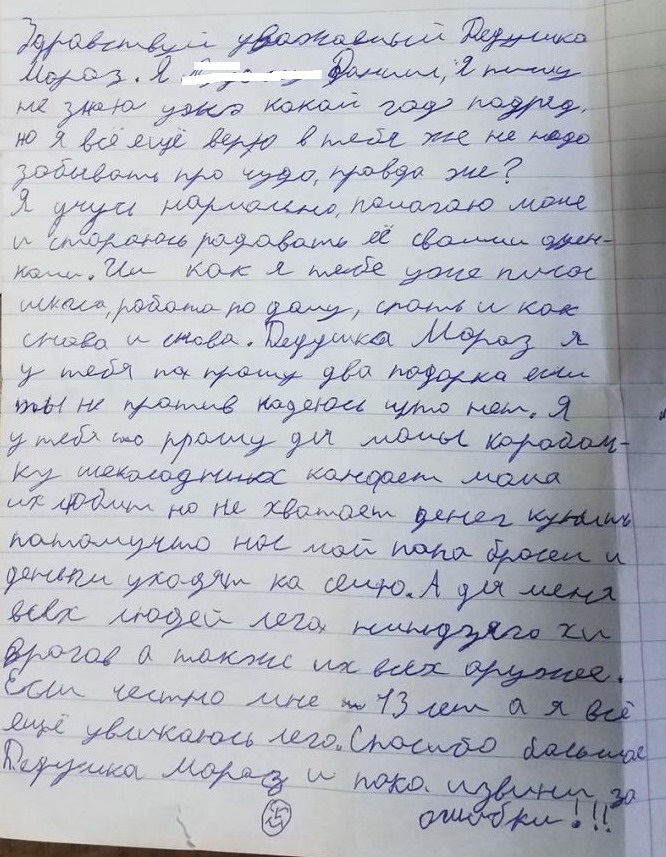 Здравствуй уважаемый Дедушка
Мороз. Я Даниил, Я пишу
не знаю уже какой год подряд,
но я всё ещё верю в тебя же не надо
забывать про чудо, правда же?
Я учусь нармально, помагаю маме
и стараюсь радавать её своими оцен-
ками. Чи как я тебе уже писал
школа, работа по дому, спать и как
снова и снова. Дедушка Мороз я
у тебя па прашу два подарка если
ты не против надеюсь что нет. Я
у тебя по прашу для мамы карабом-
ку шекаладных канфет мама
их любит но не хватает денег купить
патамучто нас мой папа бросил и
деньги уходят на семю. А для меня
всех людей лего ниндзяго хи
врагов а также их всех аружее.
Если честно мне 13 лет а я всё
ещё увликаюсь лего. Спасибо большое
Дедушка Мороз и пока извини за
ошибки!!!